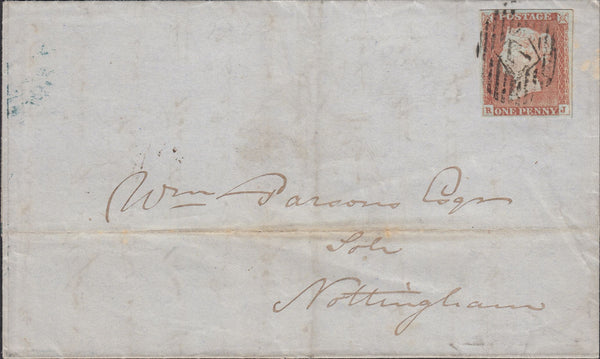 POSTAGE
R J
ONE PENNY
Wm Parsons Esqr
Solr
Nottingham